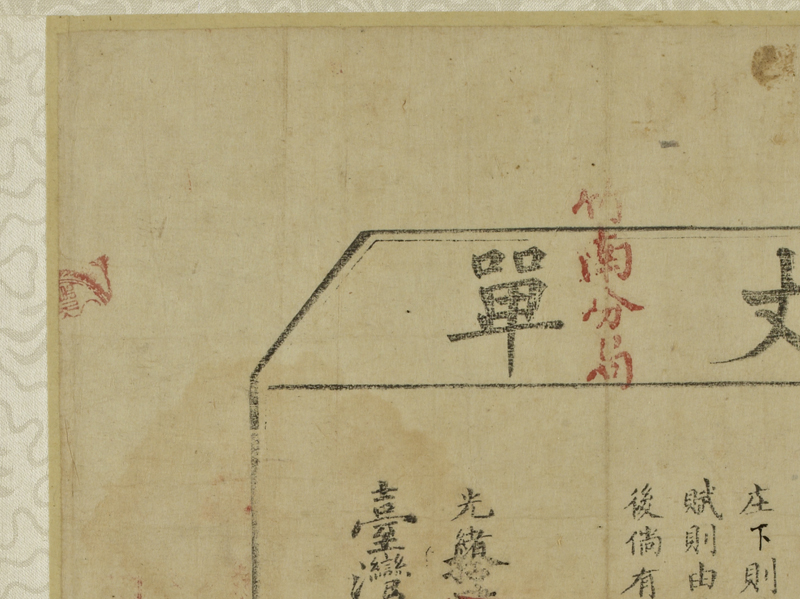 丈單
竹南分局
庄下則
賦則由
後倘有
光緒
臺灣